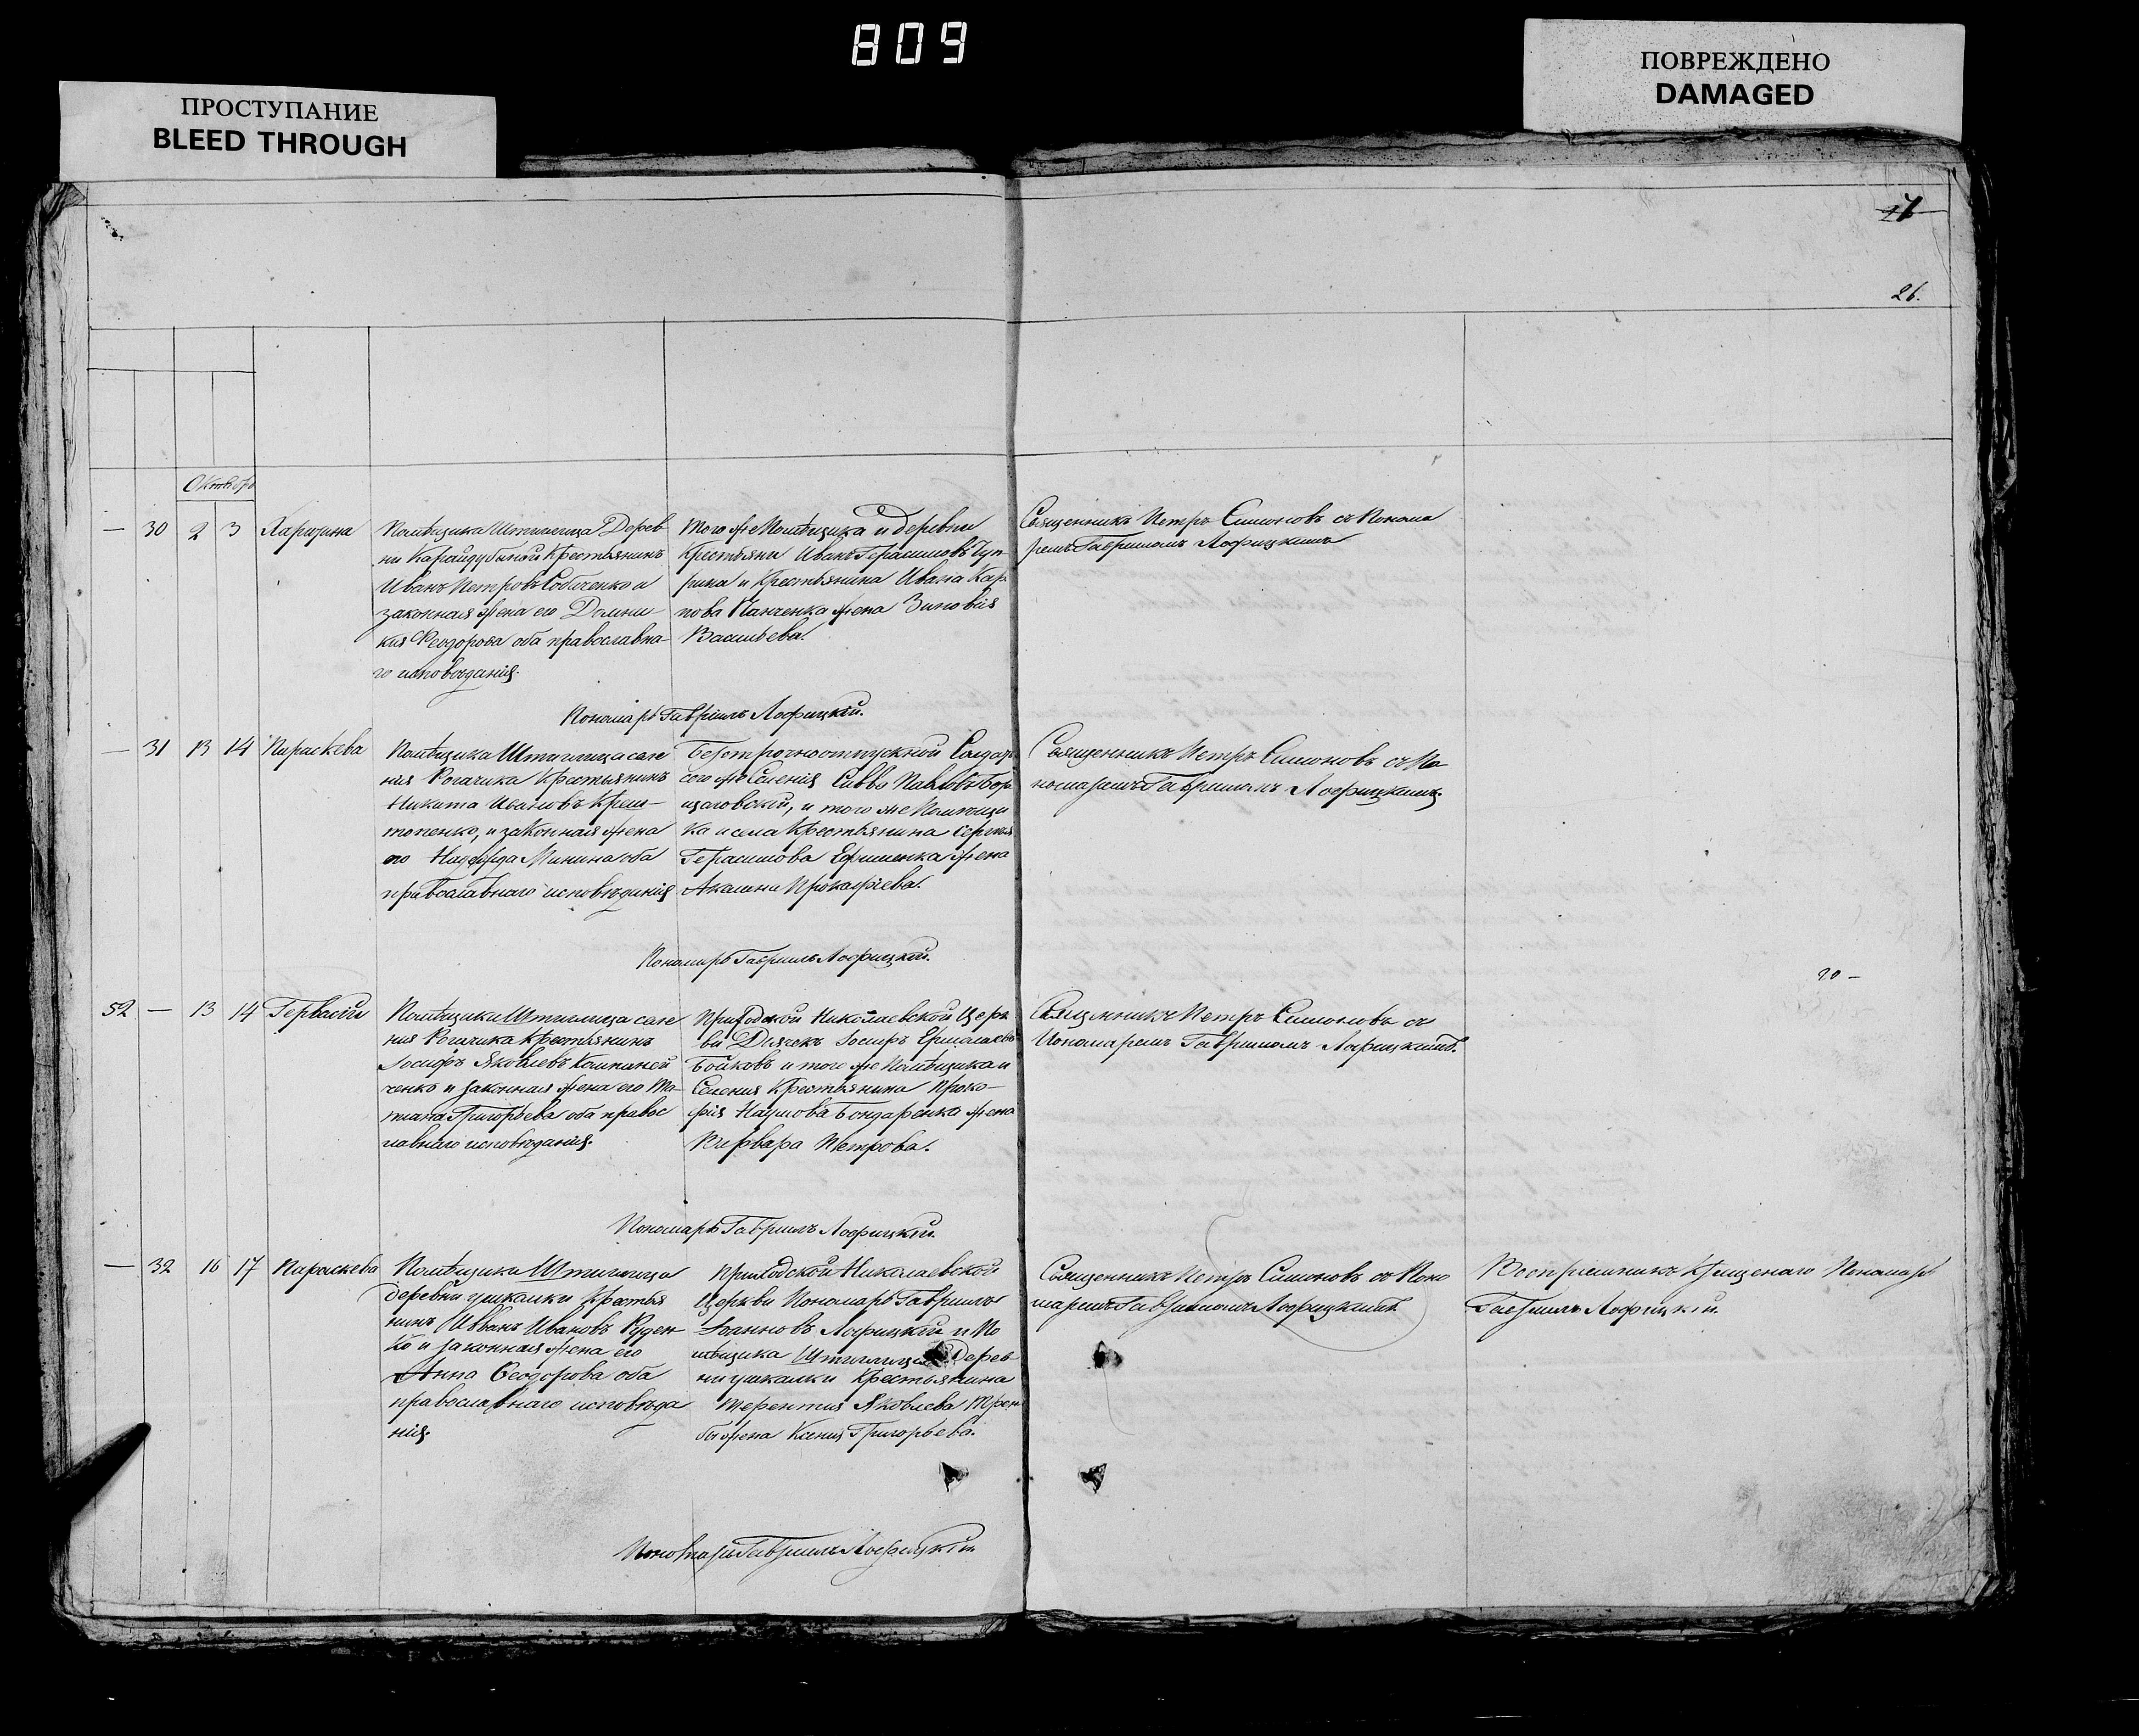 809
ПРОСТУПАНИЕ
BLEED THROUGH
ПОВРЕЖДЕНО
DAMAGED
26.
Октябрь
— 30 2 3 Харитина
Помѣщика Штиглица Дерев
ни Карайдубиной Крестьянинъ
Иванъ Петровъ Собченко и
законная жена его Домни
кия Феодорова оба православна-
го исповѣданія.
Того же Помѣщика и деревни
Крестьяни Иванъ Герасимовъ Чуп
рина и Крестьянина Ивана Кар
пова Панченка жена Зиновія
Васильева.
Священникъ Петръ Симоновъ съ Понома
ремъ Гавріиломъ Лофицкимъ
Пономарь Гавріилъ Лофицкій.
— 31 13 14 Параскева
Помѣщика Штиглица селе
нія Рогачика Крестьянинъ
Никита Ивановъ
и законная жена
его Надежда Минина оба
православнаго исповѣданія
Безсрочноотпускной Солдатъ
сего же Селенія Савва Павловъ
и того же Помѣщи
ка и села Крестьянина Сергія
Герасимова Ефименка жена
Прокофіева.
Священникъ Петръ Симоновъ съ По
номаремъ Гавріиломъ Лофицкимъ.
Пономарь Гавріилъ Лофицкій.
20 —
52 — 13 14 Гервасій
Помѣщика Штиглица селе
нія Рогачика Крестьянинъ
Іосифъ Яковлевъ
и законная жена его Та-
тіана Григорьева оба правос
лавнаго исповѣданія.
Приходской Николаевской Церк
ви Дьячокъ Іосифъ Ермолаевъ
Бойковъ и того же Помѣщика и
Селенія Крестьянина Проко-
фія Наумова Бондаренка жена
Варвара Петрова.
Священникъ Петръ Симоновъ съ
Пономаремъ Гавріиломъ Лофицкимъ.
Пономарь Гавріилъ Лофицкій.
— 32 16 17 Параскева
Помѣщика Штиглица
деревни Ушкалки Крестья
нинъ Иванъ Ивановъ Руден
ко и законная жена его
Анна Феодорова оба
православнаго исповѣда
нія.
Приходской Николаевской
Церкви Пономарь Гавріилъ
Іоанновъ Лофицкій и По
мѣщика Штиглица Дерев
ни Ушкалки Крестьянина
Терентія Яковлева
жена Ксенія Григорьева.
Священникъ Петръ Симоновъ съ Поно
маремъ Гавріиломъ Лофицкимъ
Воспріемникъ Крещенаго Пономарь
Гавріилъ Лофицкій.
Пономарь Гавріилъ Лофицкій